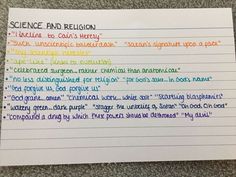 SCIENCE AND RELIGION
"I incline to Cain's Heresy"
"Such unscientific balderdash" "Satan's signature upon a face"
"My scientific heresies"
"ape-like" (links to evolution)
"celebrated surgeon... rather chemical than anatomical"
"no less distinguished for religion" "for God's sake... in God's name"
"God forgive us, God forgive us"
"God grant... amen" "chemical work... white door" "startling blasphemies"
"watery green... dark purple" "stagger the unbelief of Satan" "oh God. Oh God"
"compound a drug by which these powers should be dethroned" "My devil"